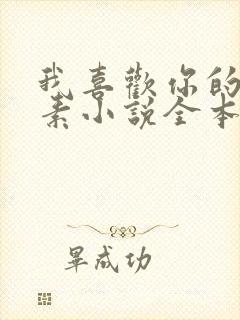 我喜歡你的
素小說全本
畢成功